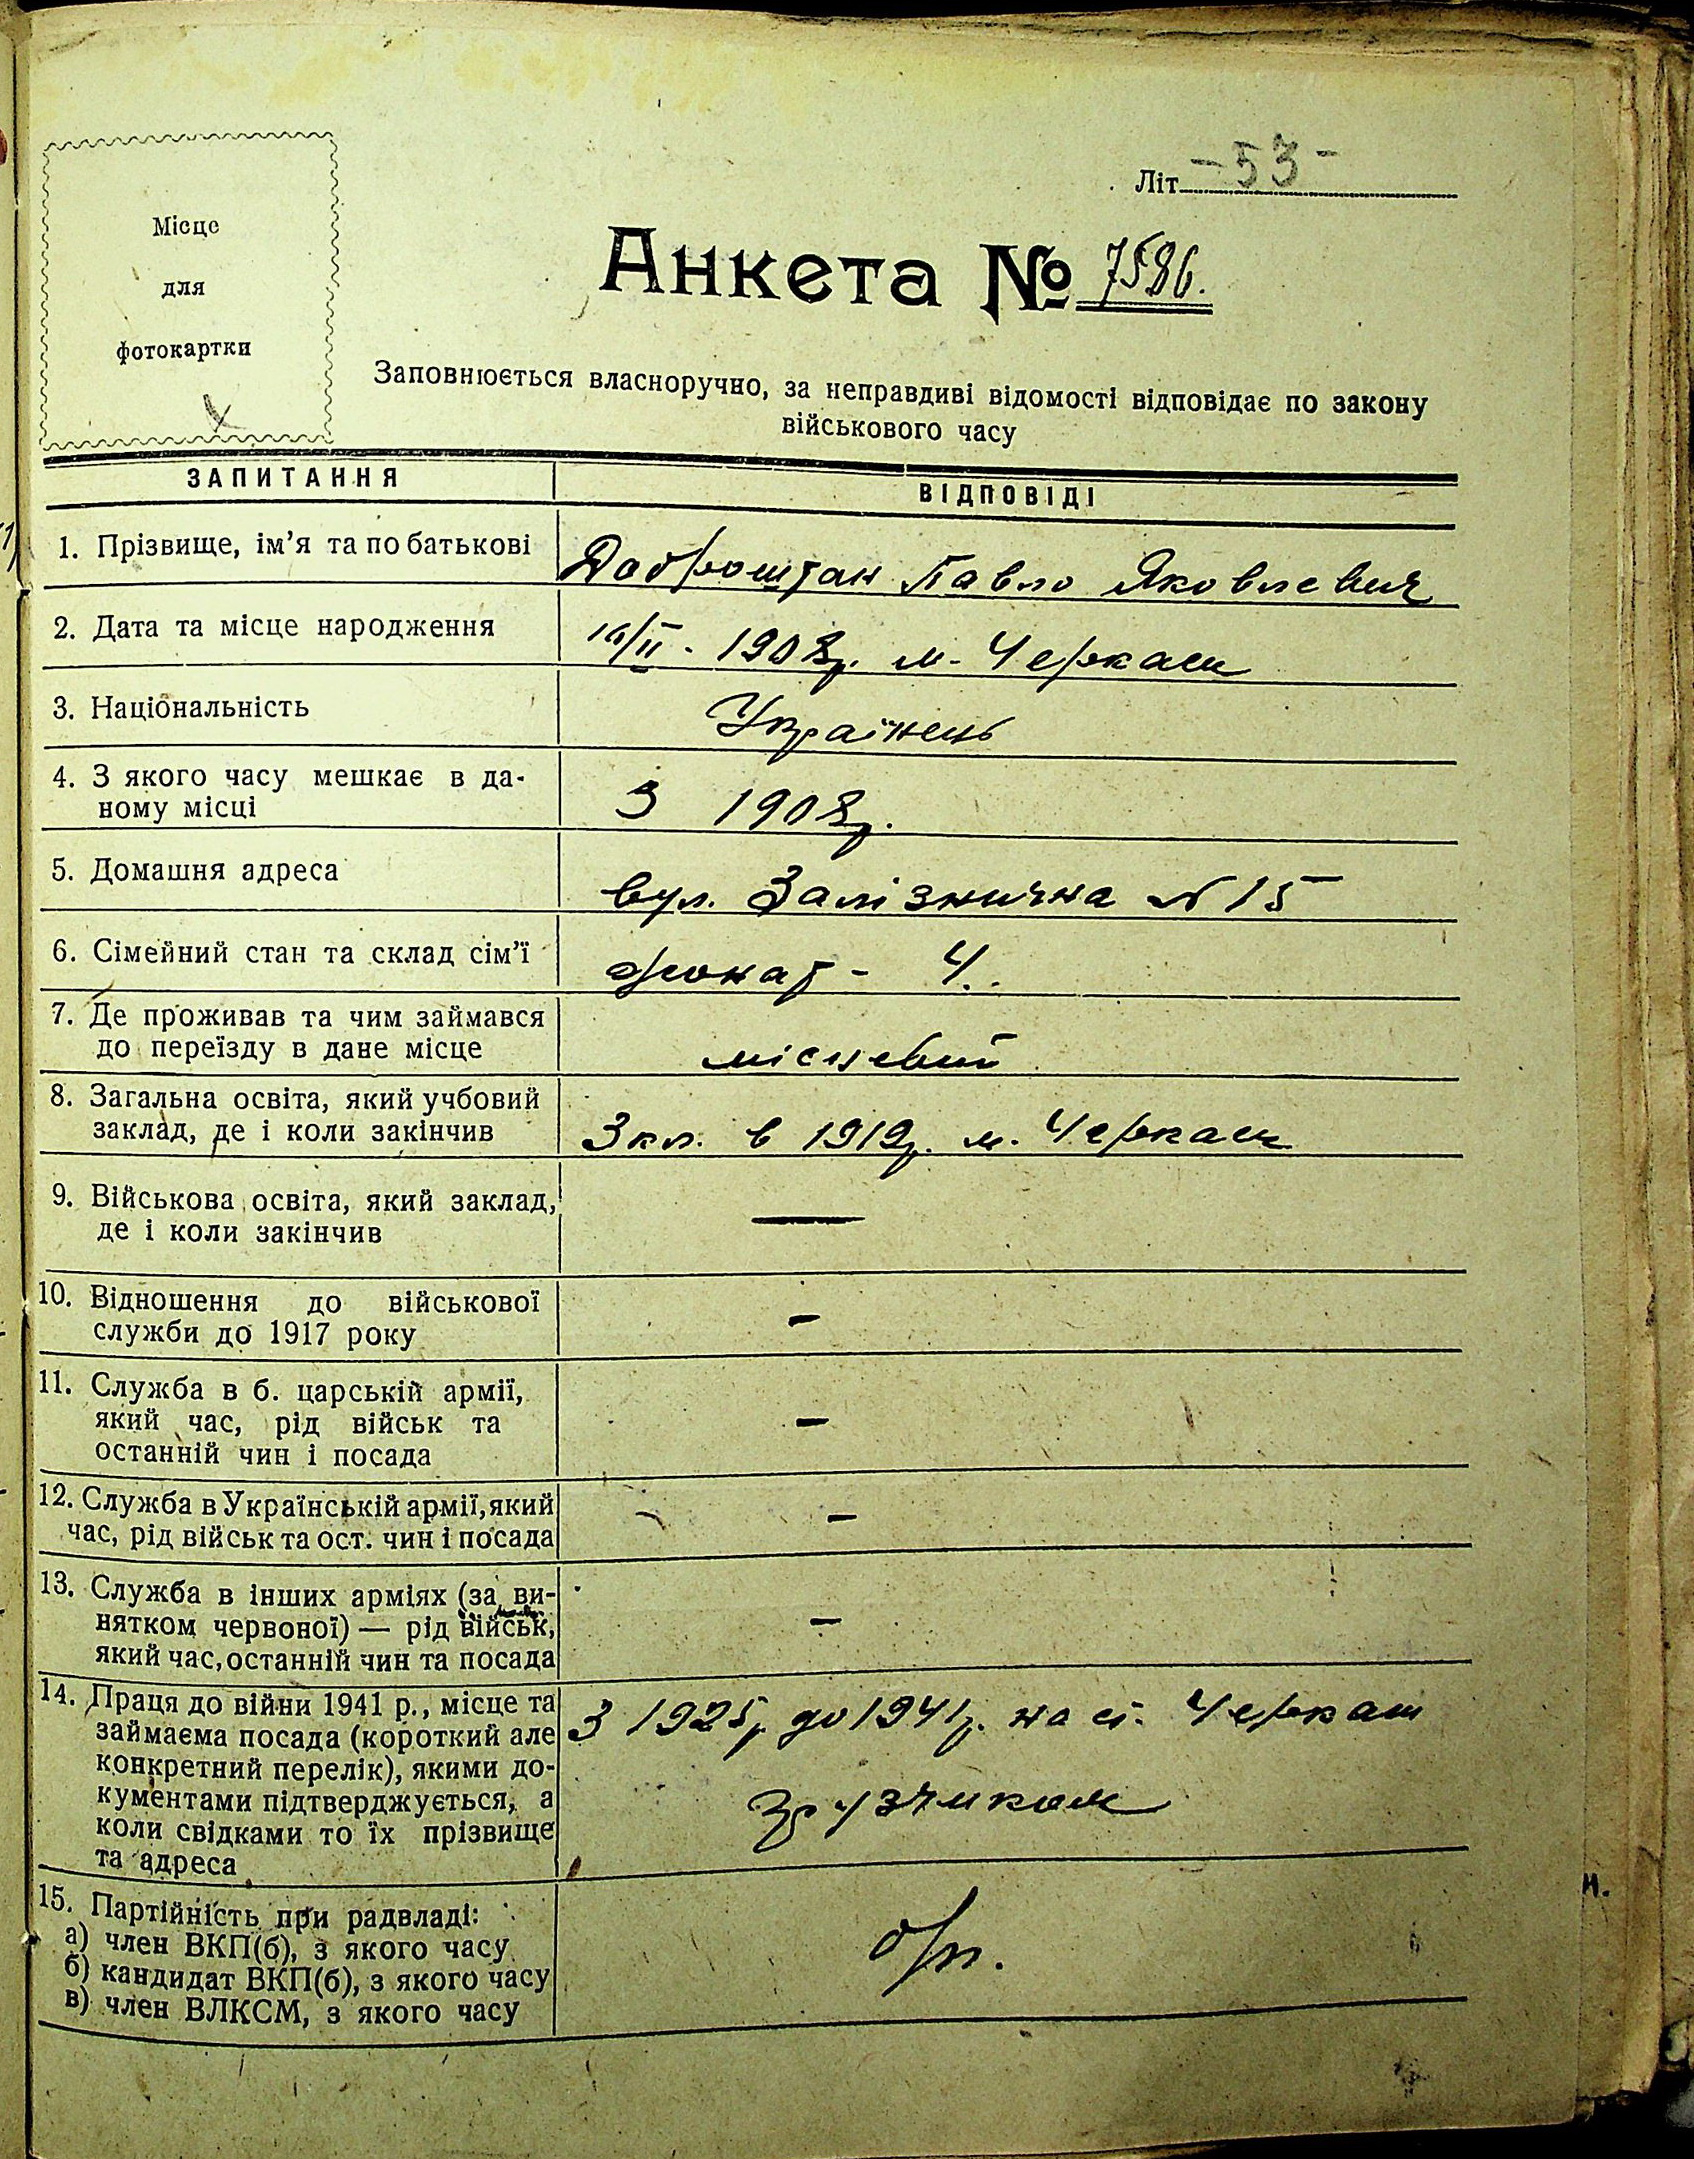 Місце
для
фотокартки
Літ -53-
Анкета № 7586.
Заповнюється власноручно, за неправдиві відомості відповідає по закону
військового часу
ЗАПИТАННЯ
ВІДПОВІДІ
1. Прізвище, ім’я та по батькові
Доброштан Павло Яковлевич
2. Дата та місце народження
16/II - 1908р. м. Черкаси
3. Національність
Українець
4. З якого часу мешкає в да-
ному місці
З 1908р.
5. Домашня адреса
вул. Залізнична № 15
6. Сімейний стан та склад сім’ї
жонат - 4.
7. Де проживав та чим займався
до переїзду в дане місце
місцевий
8. Загальна освіта, який учбовий
заклад, де і коли закінчив
3 кл. в 1919р. м. Черкаси
9. Військова освіта, який заклад,
де і коли закінчив
—
10. Відношення до військової
служби до 1917 року
–
11. Служба в б. царській армії,
який час, рід військ та
останній чин і посада
–
12. Служба в Українській армії, який
час, рід військ та ост. чин і посада
–
13. Служба в інших арміях (за ви-
нятком червоної) — рід військ,
який час, останній чин та посада
–
14. Праця до війни 1941 р., місце та
займаєма посада (короткий але
конкретний перелік), якими до-
кументами підтверджується, а
коли свідками то їх прізвище
та адреса
З 1925р. до 1941р. на ст. Черкаси
грузчиком
15. Партійність при радвладі:
а) член ВКП(б), з якого часу
б) кандидат ВКП(б), з якого часу
в) член ВЛКСМ, з якого часу
б/п.